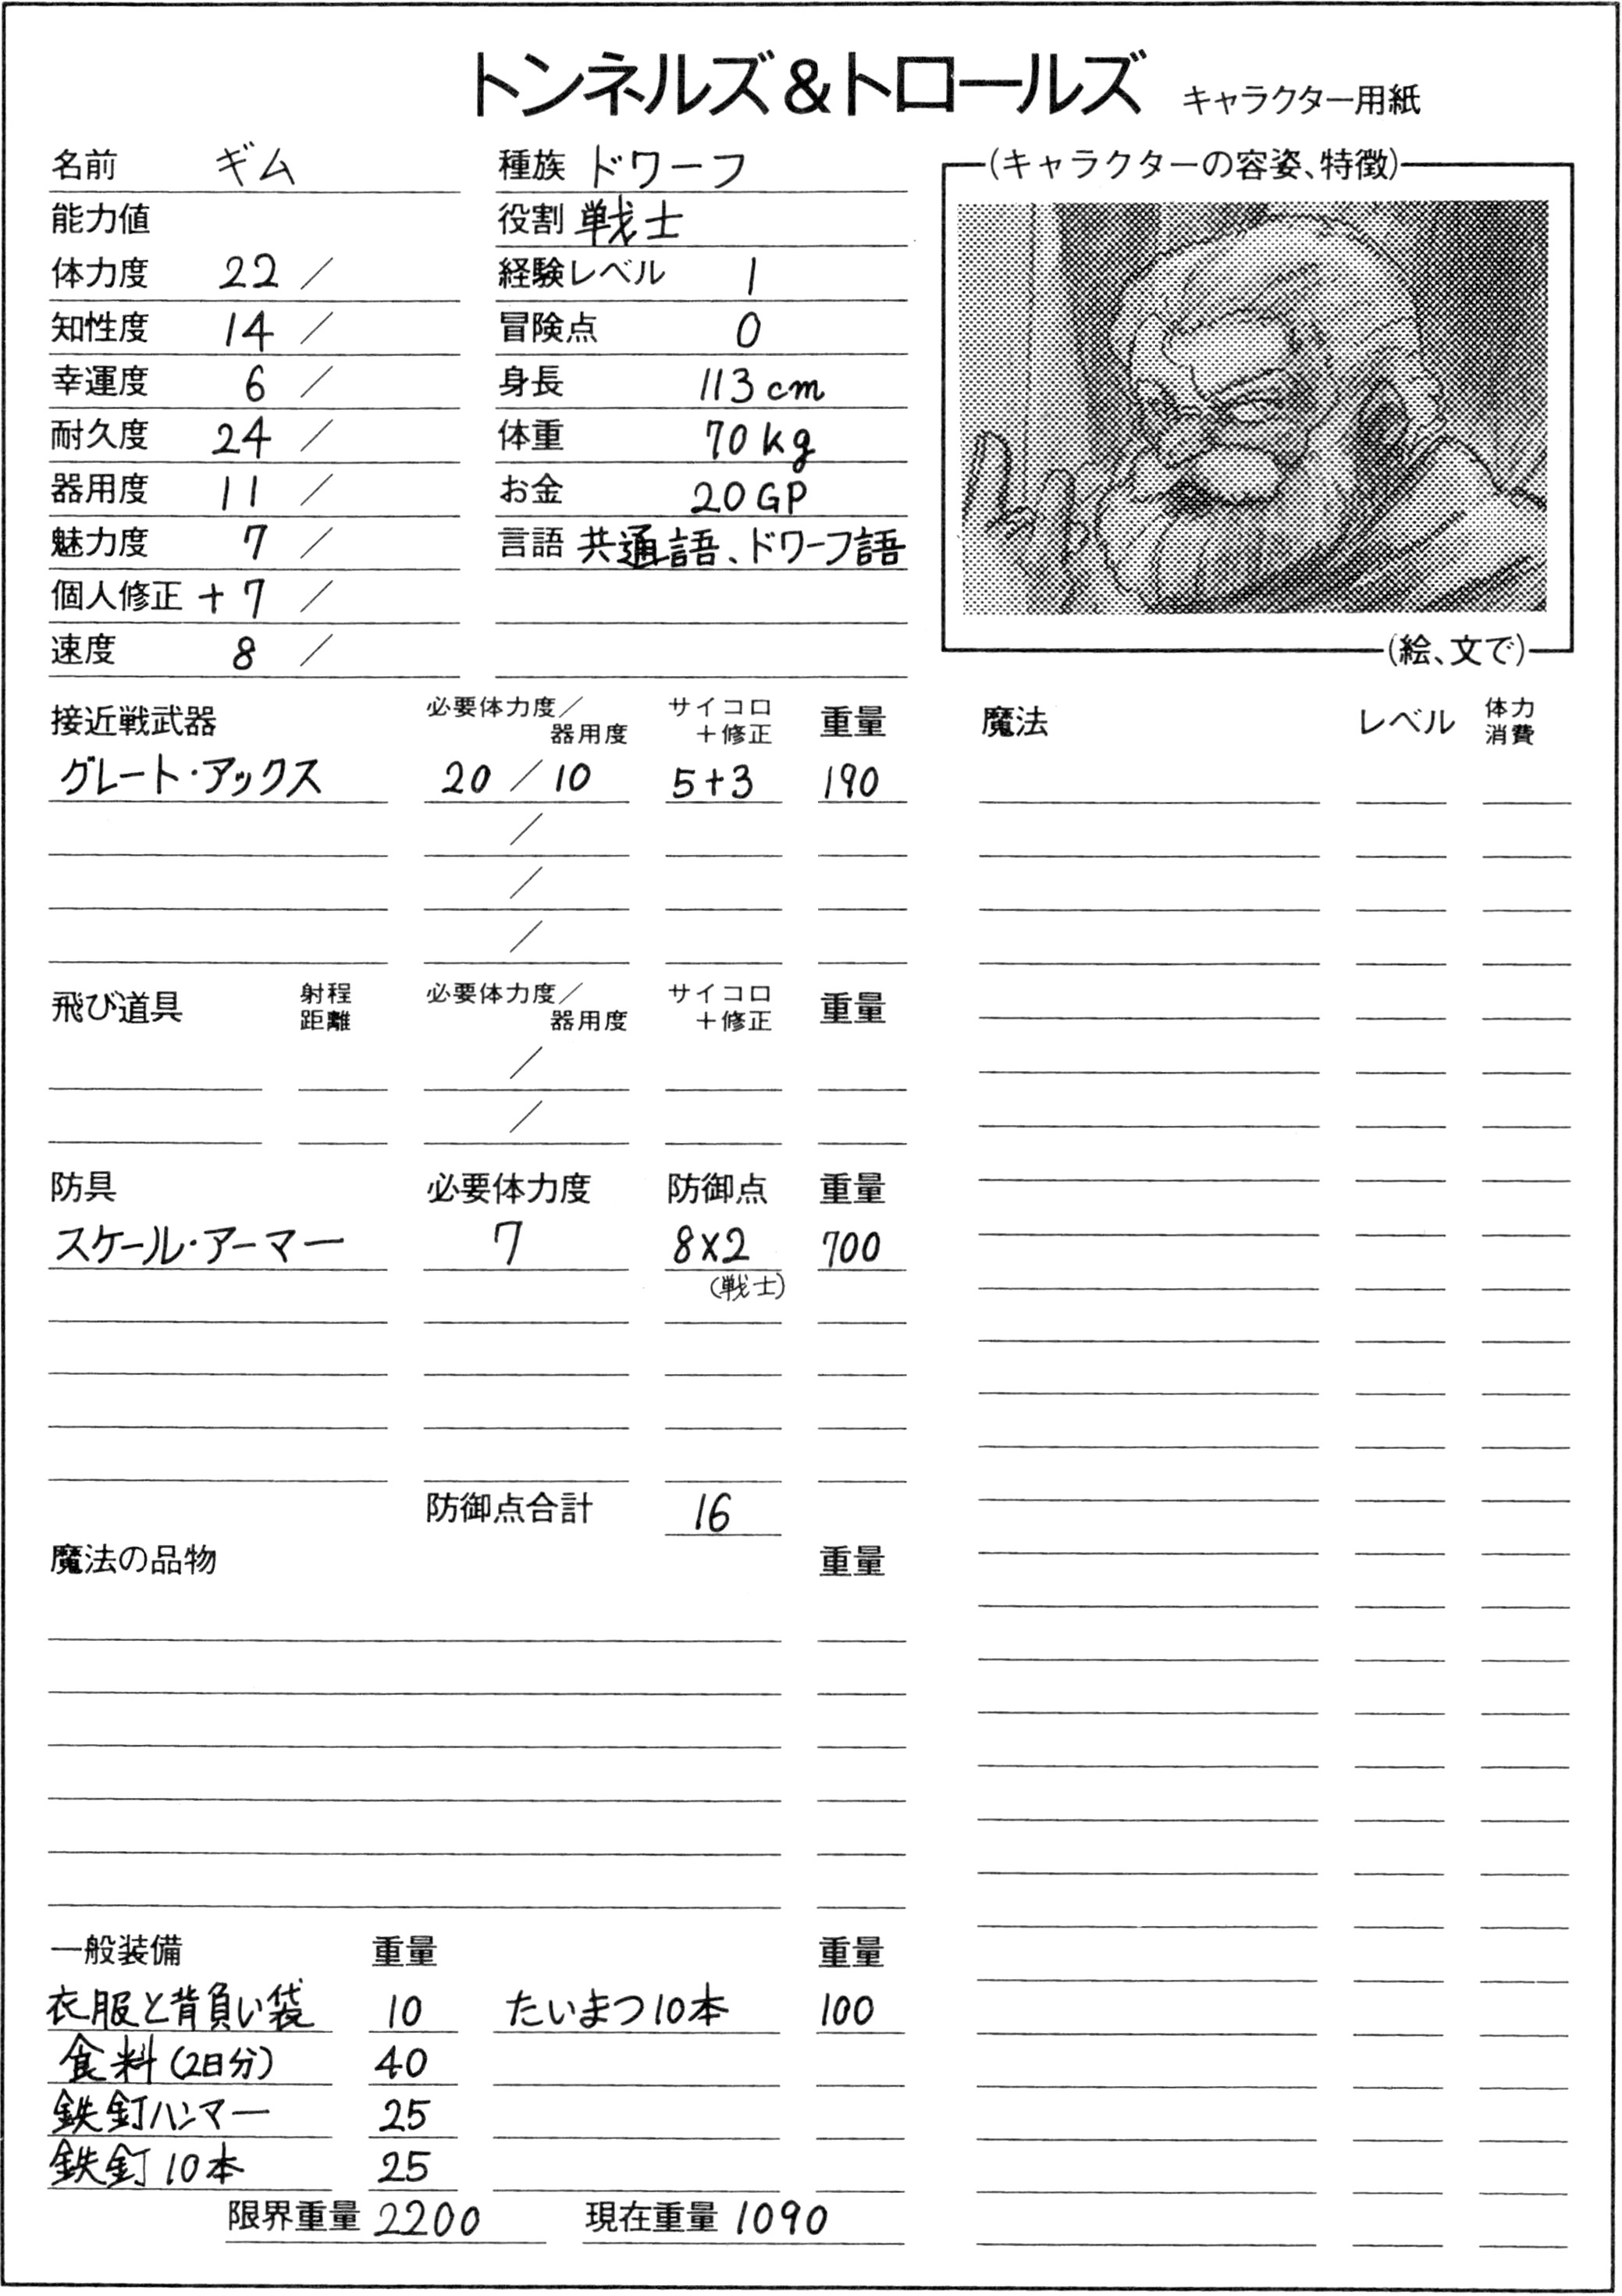 トンネルズ&トロールズ キャラクター用紙
名前 ギム
能力値
体力度 22 /
知性度 14 /
幸運度 6 /
耐久度 24 /
器用度 11 /
魅力度 7 /
個人修正 +7 /
速度 8 /
種族 ドワーフ
役割 戦士
経験レベル 1
冒険点 0
身長 113cm
体重 70kg
お金 20GP
言語 共通語、ドワーフ語
(キャラクターの容姿、特徴)
(絵、文で)
接近戦武器 必要体力度/器用度 サイコロ+修正 重量
グレート・アックス 20/10 5+3 190
/
/
/
飛び道具 射程距離 必要体力度/器用度 サイコロ+修正 重量
/
/
防具 必要体力度 防御点 重量
スケール・アーマー 7 8×2 700
(戦士)
防御点合計 16
魔法の品物 重量
一般装備 重量 重量
衣服と背負い袋 10 たいまつ10本 100
食料(2日分) 40
鉄釘ハンマー 25
鉄釘10本 25
限界重量 2200 現在重量 1090
魔法 レベル 体力消費